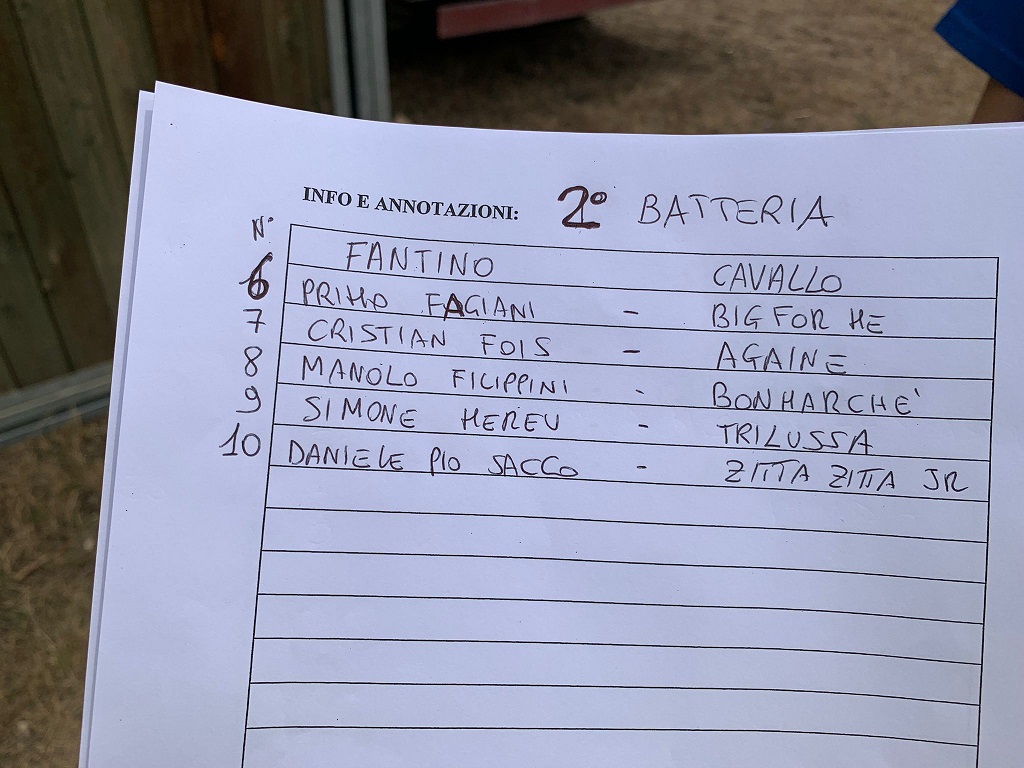 INFO E ANNOTAZIONI: 2° BATTERIA
N°
FANTINO CAVALLO
6 PRIMO FAGIANI - BIG FOR ME
7 CRISTIAN FOIS - AGAINE
8 MANOLO FILIPPINI - BONMARCHE'
9 SIMONE MEREU - TRILUSSA
10 DANIELE PIO SACCO - ZITTA ZITTA JR